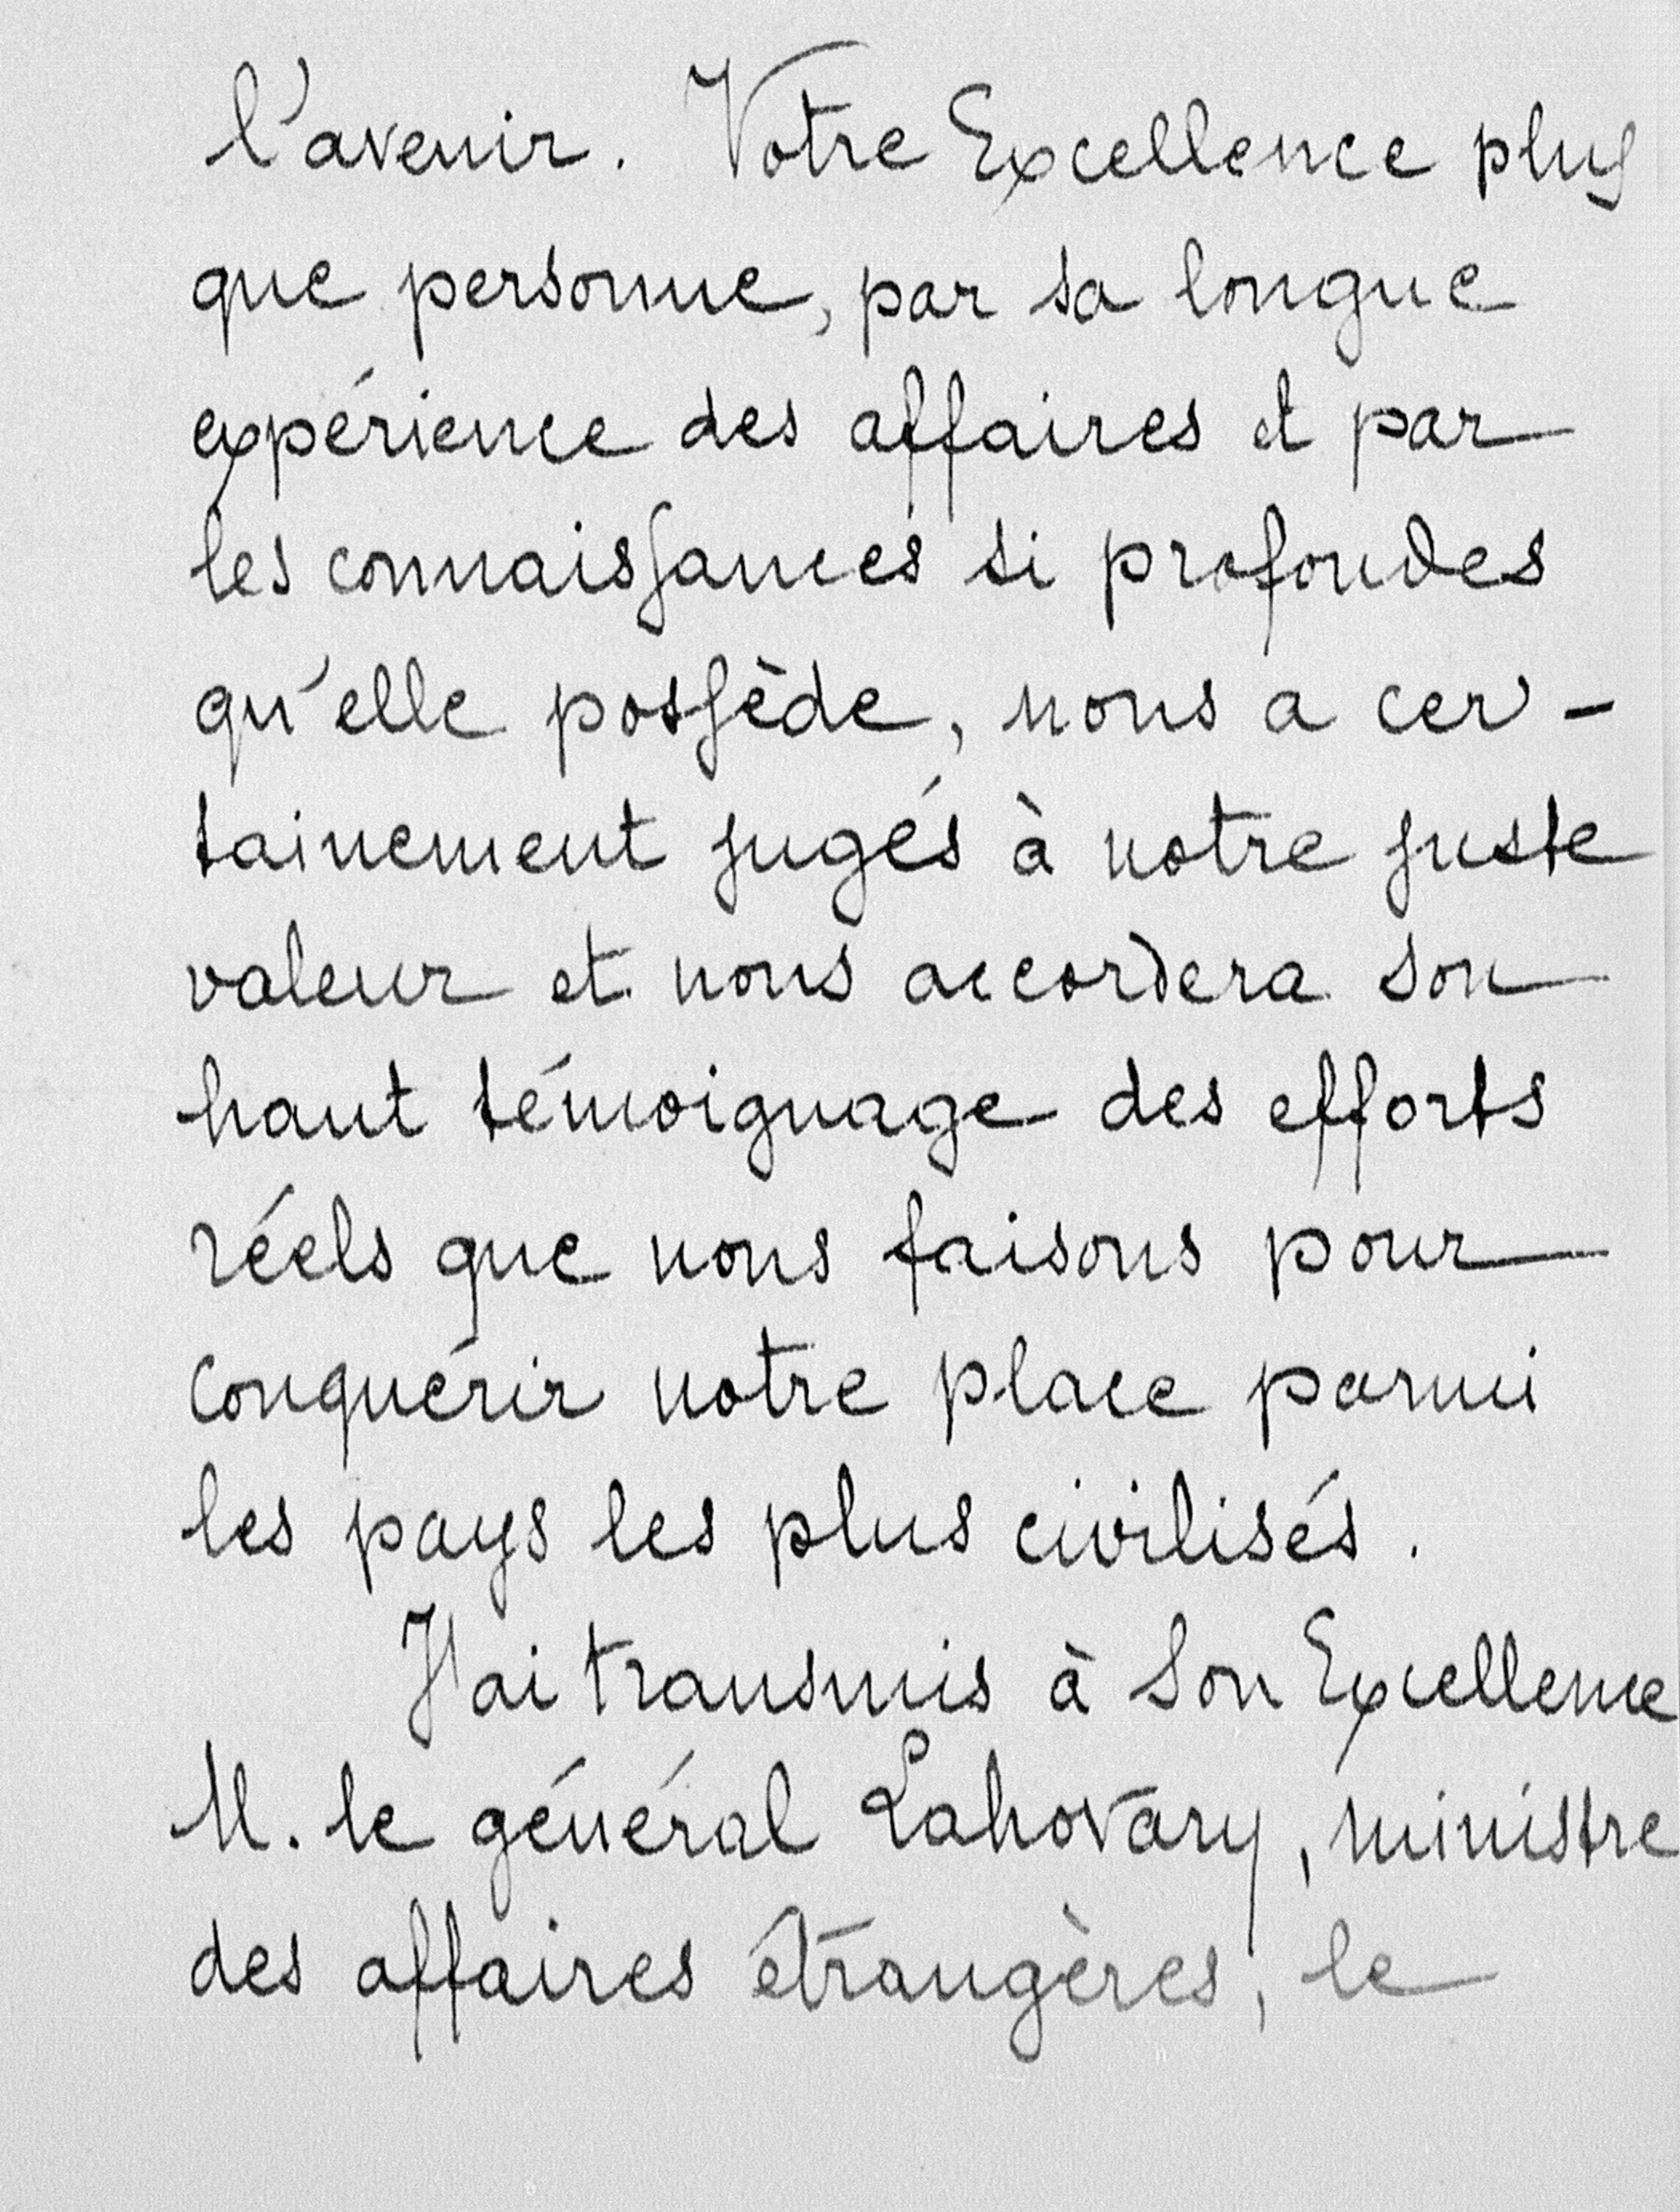 l'avenir. Votre Excellence plus
que personne, par sa longue
expérience des affaires et par
les connaissances si profondes
qu'elle possède, nous a cer-
tainement jugés à notre juste
valeur et nous accordera son
haut témoignage des efforts
réels que nous faisons pour
conquérir notre place parmi
les pays les plus civilisés.
J'ai transmis à Son Excellence
M. le général Lahovary, ministre
des affaires étrangères, le